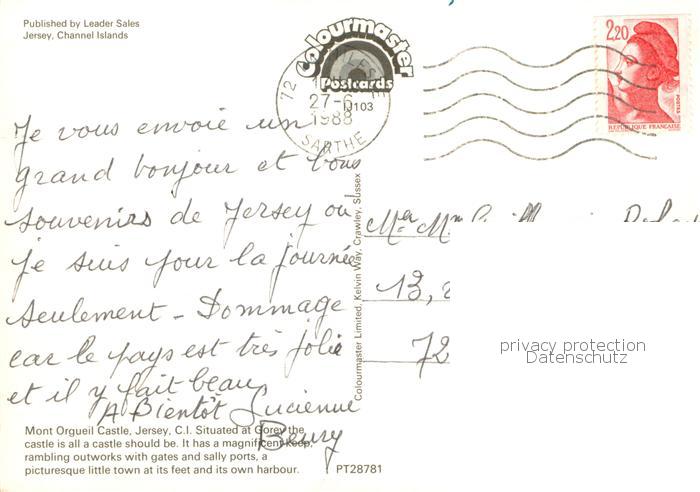 Published by Leader Sales
Jersey, Channel Islands
Colourmaster
Postcards
J103
72
27-6
1988
SARTHE
2,20
POSTES
REPUBLIQUE FRANCAISE
Je vous envoie un
grand bonjour et bons
souvenirs de Jersey ou
je suis pour la journée
seulement - Dommage
car le pays est très jolie
et il y fait beau
A Bientôt Lucienne
Beury
Colourmaster Limited, Kelvin Way, Crawley, Sussex
13,
72
privacy protection
Datenschutz
Mont Orgueil Castle, Jersey, C.I. Situated at Gorey the
castle is all a castle should be. It has a magnificent keep,
rambling outworks with gates and sally ports, a
picturesque little town at its feet and its own harbour.
PT28781